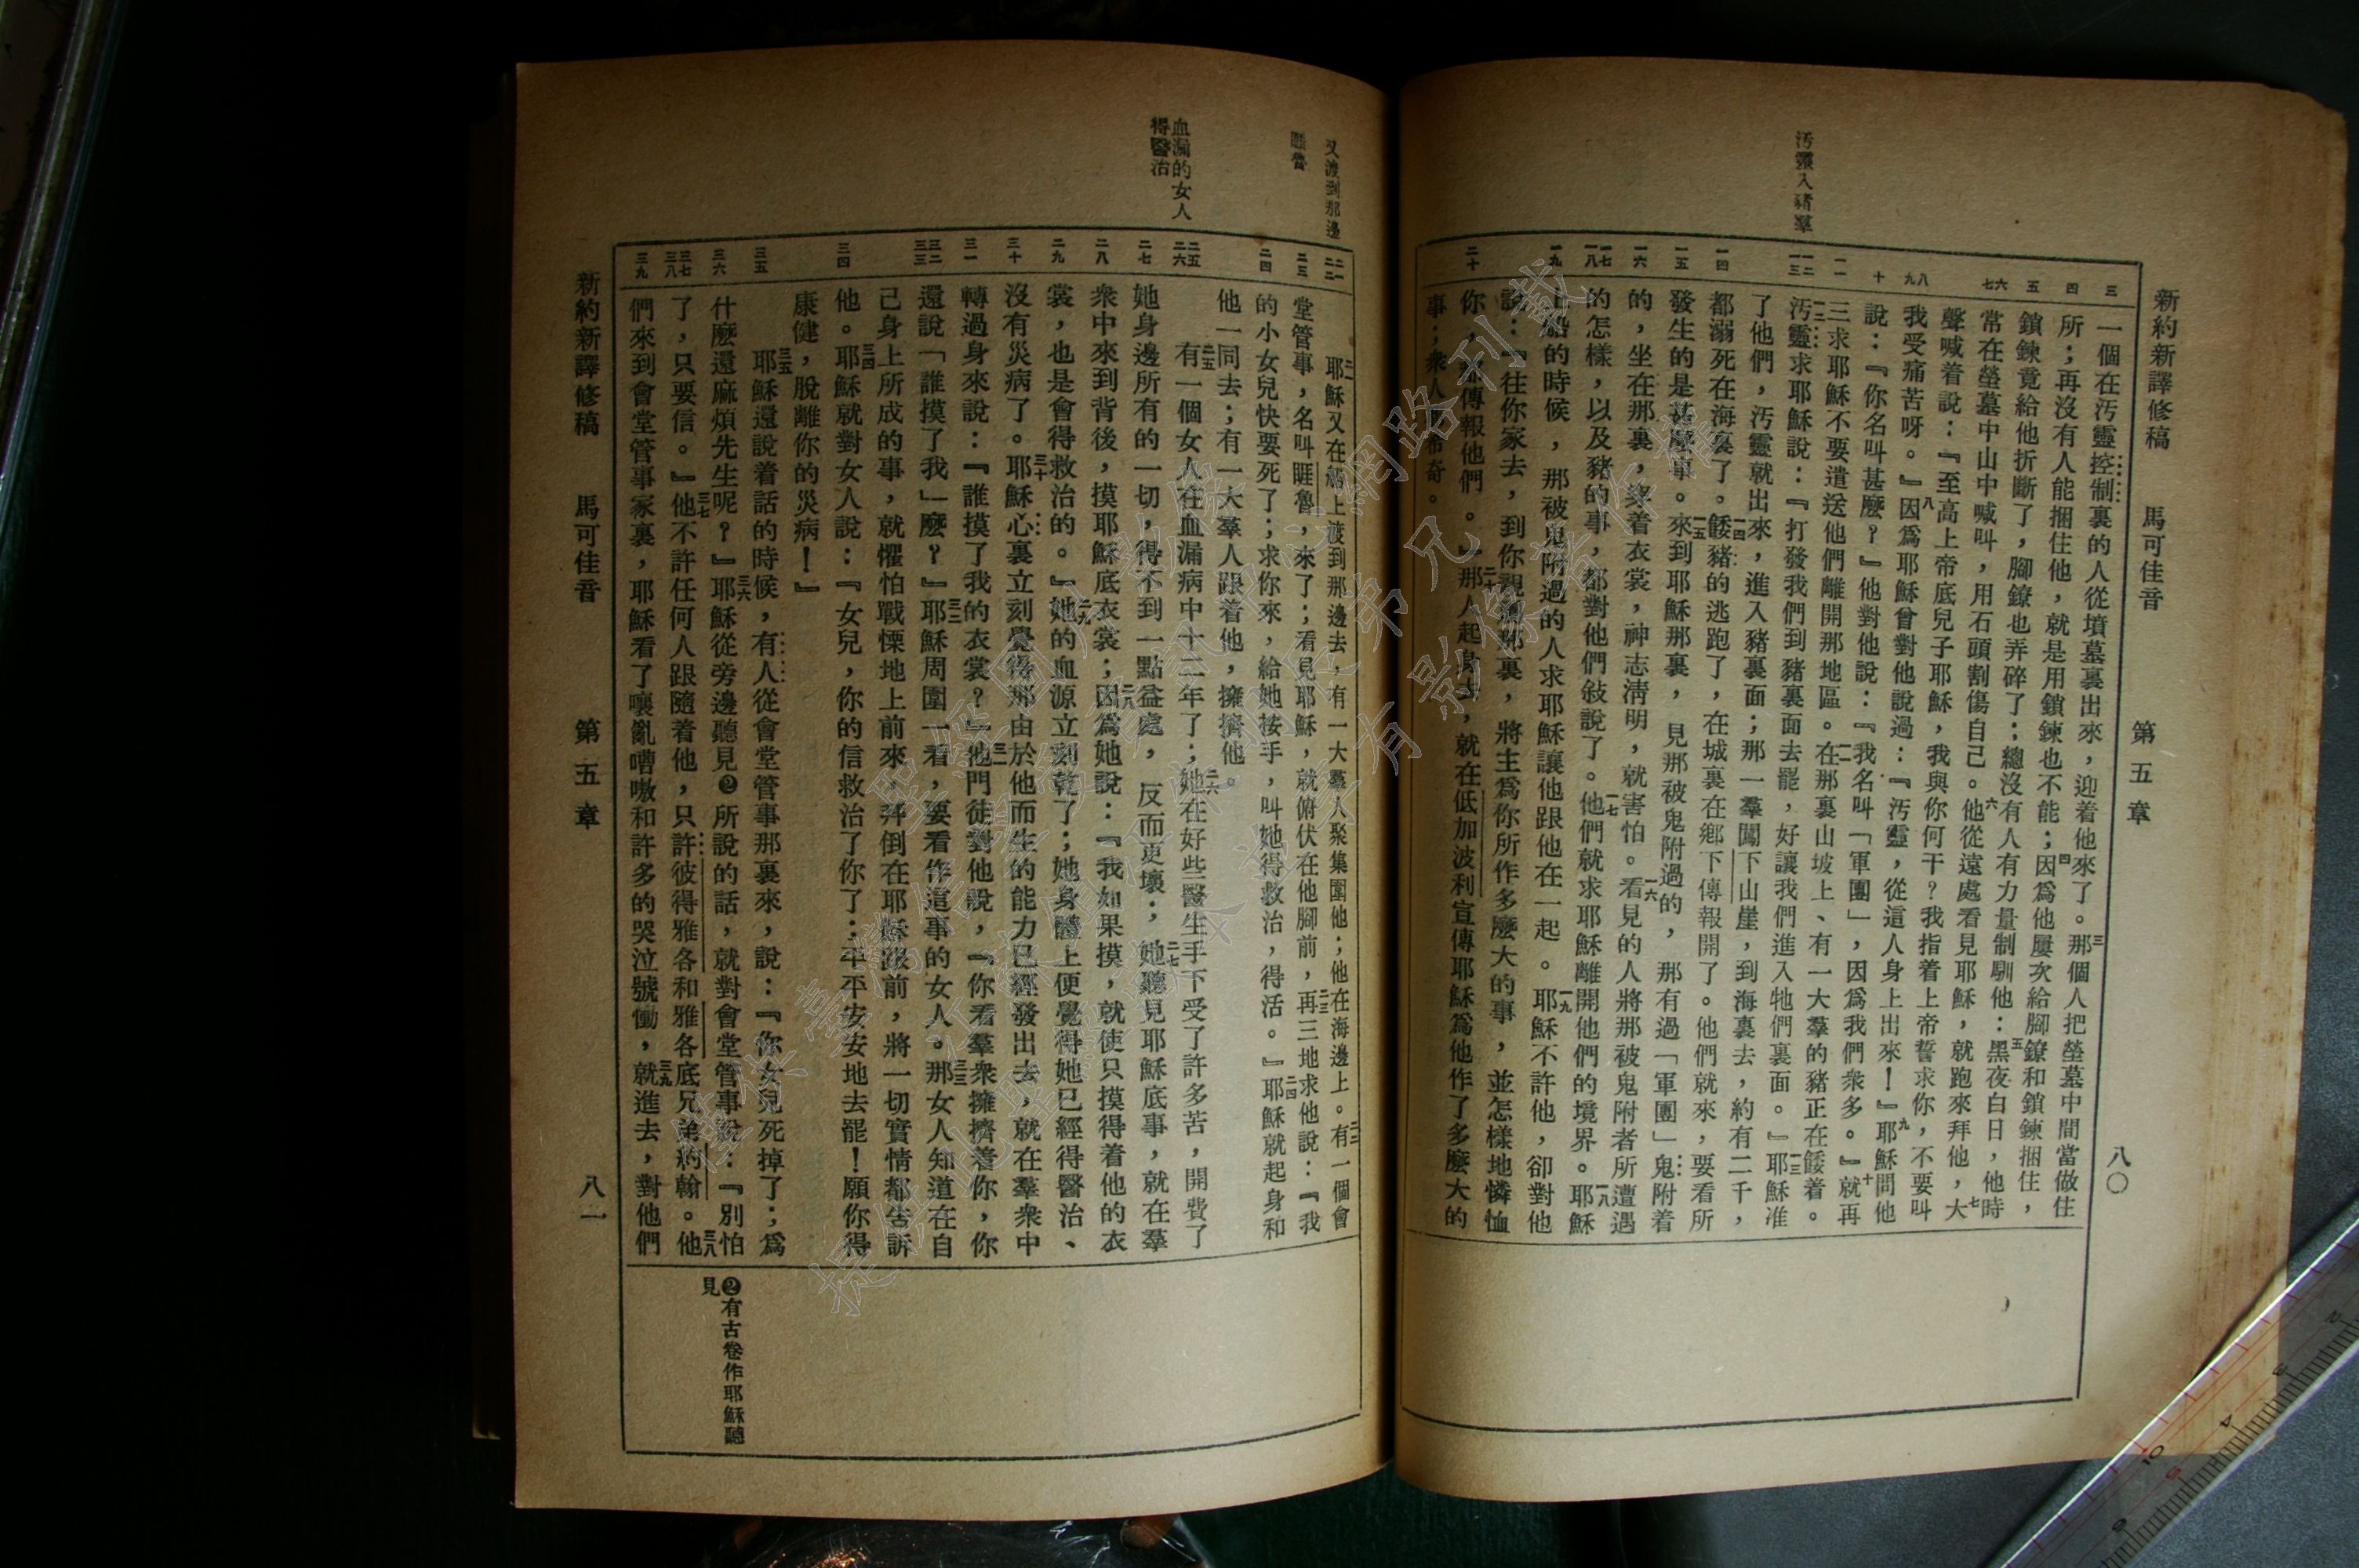 新約新譯修稿 馬可佳音 第五章 八〇
汚靈入豬羣
一個在汚靈控制裏的人從墳墓裏出來，迎着他來了。三那個人把塋墓中間當做住
所；再沒有人能捆住他，就是用鎖鍊也不能；四因爲他屢次給腳鐐和鎖鍊捆住，
鎖鍊竟給他折斷了，腳鐐也弄碎了；總沒有人有力量制馴他：五黑夜白日，他時
常在塋墓中山中喊叫，用石頭割傷自己。六他從遠處看見耶穌，就跑來拜他，七大
聲喊着說：『至高上帝底兒子耶穌，我與你何干？我指着上帝誓求你，不要叫
我受痛苦呀。』八因爲耶穌曾對他說過：『汚靈，從這人身上出來！』九耶穌問他
說：『你名叫甚麼？』他對他說：『我名叫「軍團」，因爲我們衆多。』十就再
三求耶穌不要遣送他們離開那地區。一一在那裏山坡上、有一大羣的豬正在餧着。
一二汚靈求耶穌說：『打發我們到豬裏面去罷，好讓我們進入牠們裏面。』一三耶穌准
了他們，汚靈就出來，進入豬裏面；那一羣闖下山崖，到海裏去，約有二千，
都溺死在海裏了。一四餧豬的逃跑了，在城裏在鄉下傳報開了。他們就來，要看所
發生的是甚麼事。一五來到耶穌那裏，見那被鬼附過的，那有過「軍團」鬼附着
的，坐在那裏，穿着衣裳，神志淸明，就害怕。一六看見的人將那被鬼附者所遭遇
的怎樣，以及豬的事，都對他們敍說了。一七他們就求耶穌離開他們的境界。一八耶穌
上船的時候，那被鬼附過的人求耶穌讓他跟他在一起。一九耶穌不許他，卻對他
說：『往你家去，到你親屬那裏，將主爲你所作多麼大的事，並怎樣地憐恤
你，都傳報他們。』二十那人起身去，就在低加波利宣傳耶穌爲他作了多麼大的
事；衆人都希奇。
又渡到那邊
睚魯
血漏的女人
得醫治
二一耶穌又在船上渡到那邊去，有一大羣人聚集圍他；他在海邊上。二二有一個會
堂管事，名叫睚魯，來了；看見耶穌，就俯伏在他腳前，二三再三地求他說：『我
的小女兒快要死了；求你來，給她按手，叫她得救治，得活。』二四耶穌就起身和
他一同去；有一大羣人跟着他，擁擠他。
二五有一個女人在血漏病中十二年了；二六她在好些醫生手下受了許多苦，開費了
她身邊所有的一切，得不到一點益處，反而更壞；二七她聽見耶穌底事，就在羣
衆中來到背後，摸耶穌底衣裳；二八因爲她說：『我如果摸，就使只摸得着他的衣
裳，也是會得救治的。』二九她的血源立刻乾了；她身體上便覺得她已經得醫治、
沒有災病了。三十耶穌心裏立刻覺得那由於他而生的能力已經發出去，就在羣衆中
轉過身來說：『誰摸了我的衣裳？』三一他門徒對他說，『你看羣衆擁擠着你，你
還說「誰摸了我」麼？』三二耶穌周圍一看，要看作這事的女人。三三那女人知道在自
己身上所成的事，就懼怕戰慄地上前來，拜倒在耶穌跟前，將一切實情都告訴
他。三四耶穌就對女人說：『女兒，你的信救治了你了；平平安安地去罷！願你得
康健，脫離你的災病！』
三五耶穌還說着話的時候，有人從會堂管事那裏來，說：『你女兒死掉了；爲
什麼還麻煩先生呢？』三六耶穌從旁邊聽見❷所說的話，就對會堂管事說：『別怕
了，只要信。』三七他不許任何人跟隨着他，只許彼得雅各和雅各底兄弟約翰。三八他
們來到會堂管事家裏，耶穌看了嚷亂嘈嗷和許多的哭泣號慟，三九就進去，對他們
❷有古卷作耶穌聽
見
新約新譯修稿 馬可佳音 第五章 八一